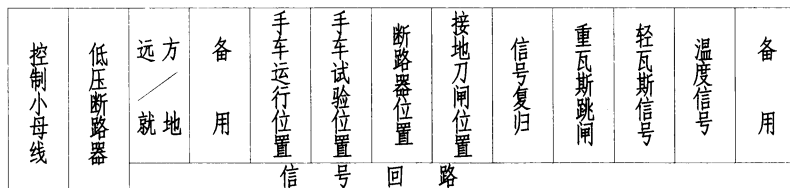 控制小母线
低压断路器
远方/就地
备用
手车运行位置
手车试验位置
断路器位置
接地刀闸位置
信号复归
重瓦斯跳闸
轻瓦斯信号
温度信号
备用
信号回路